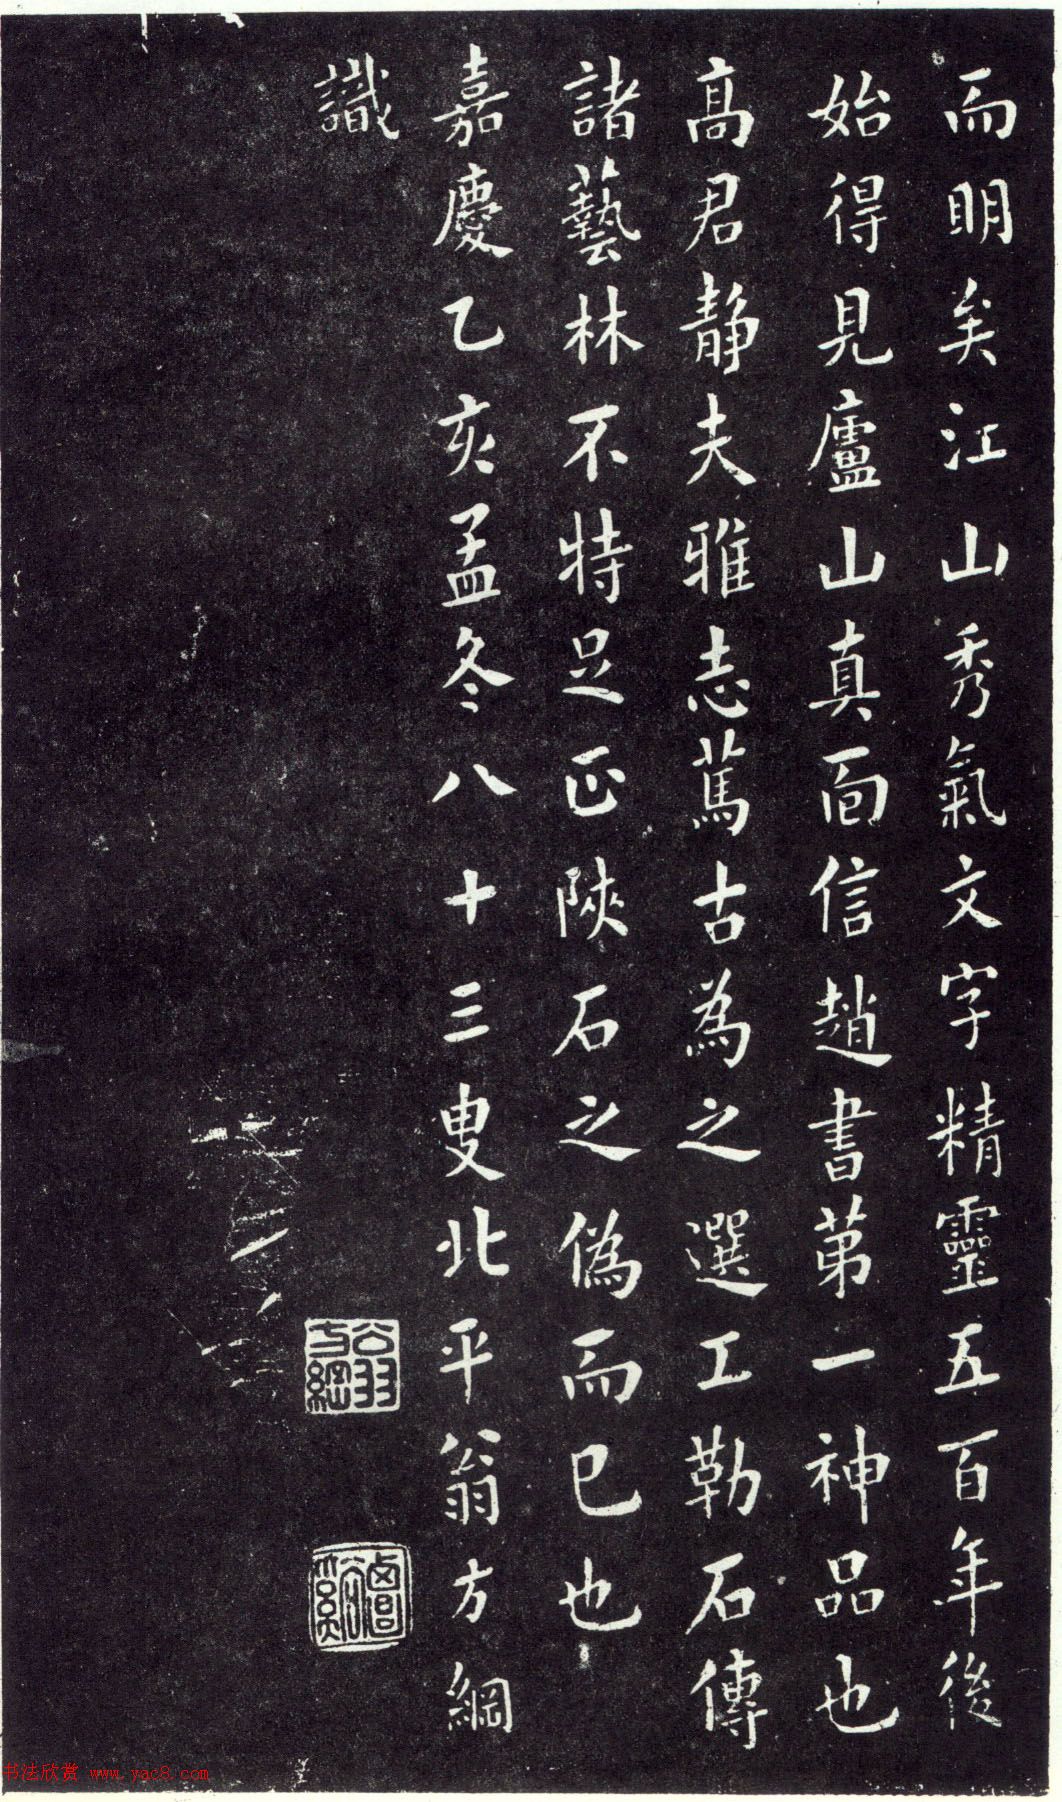 而明矣江山秀氣文字精靈五百年後
始得見廬山真面信趙書第一神品也
高君靜夫雅志篤古為之選工勒石傳
諸藝林不特足正陝石之偽而已也
嘉慶乙亥孟冬八十三叟北平翁方綱
識
翁方綱
书法欣赏 www.yac8.com